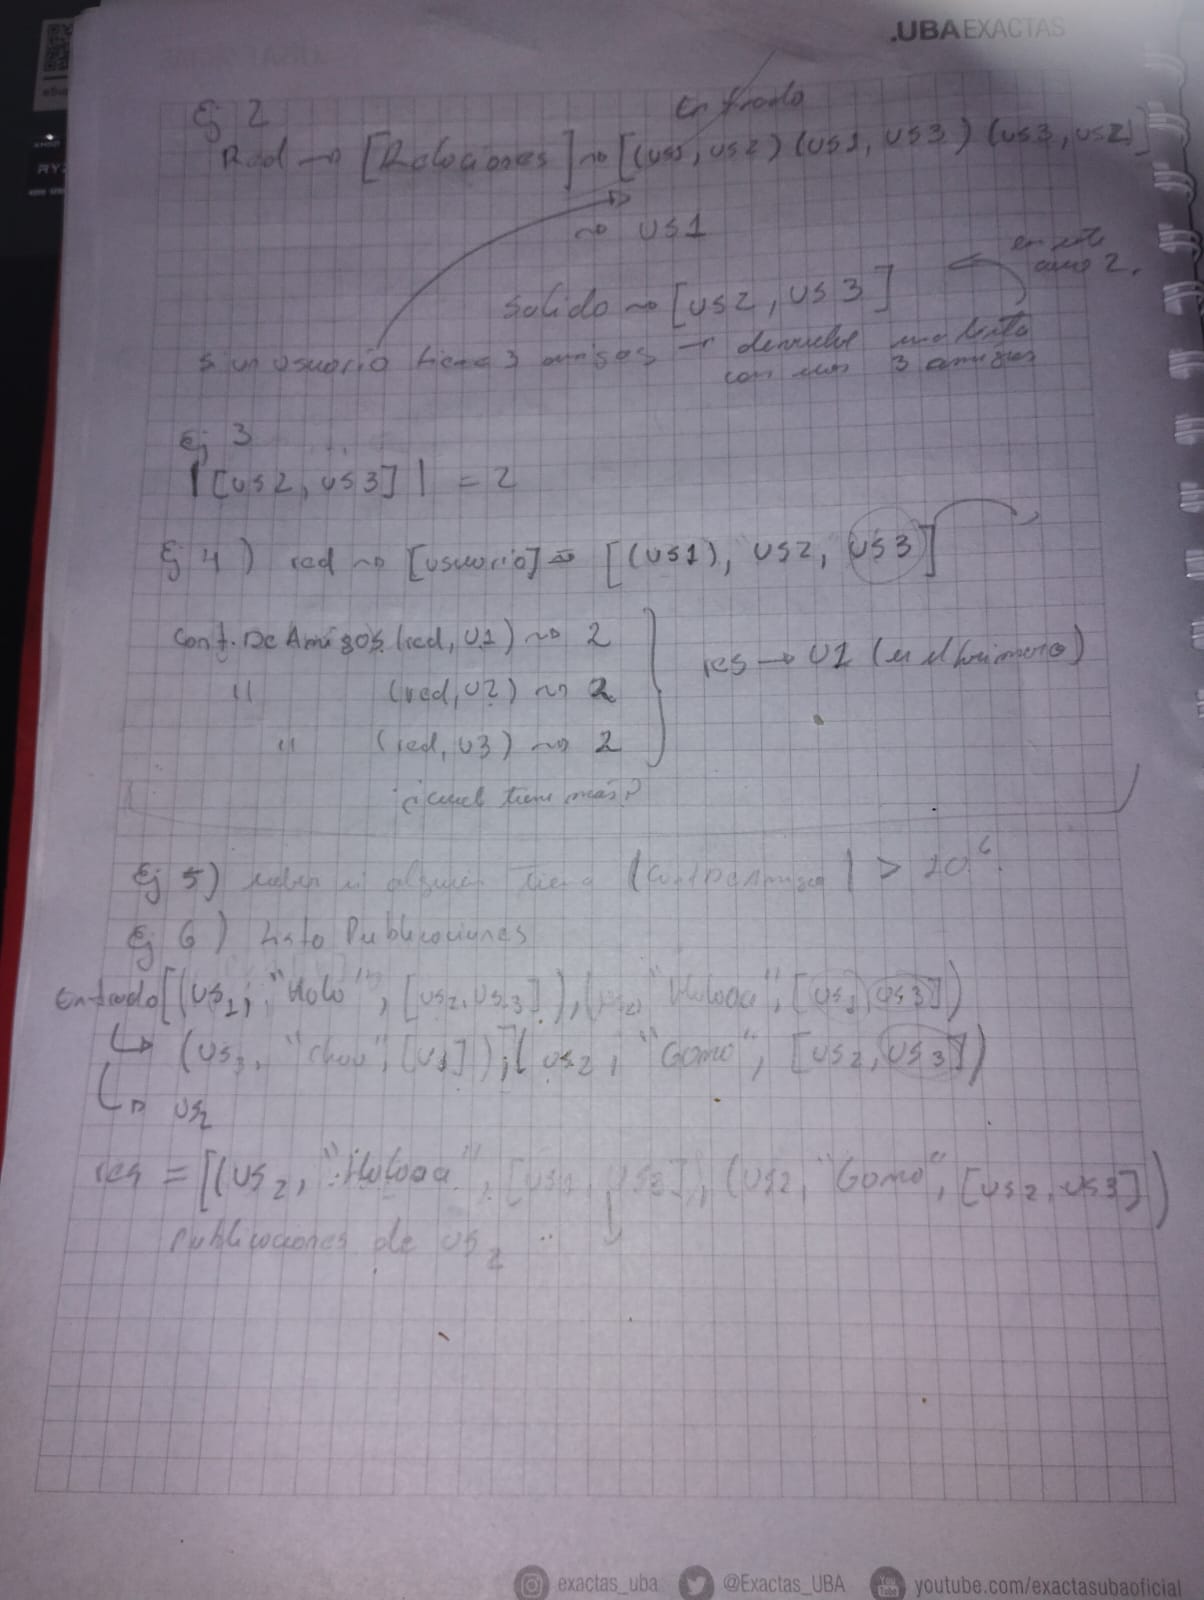 .UBAEXACTAS
Ej 2
Entrada
Red → [Relaciones] ~> [(us1, us2) (us1, us3) (us3, us2)]
~> us1
en este
caso 2.
Salida ~> [us2, us3]
si un usuario tiene 3 amigos → devuelve una lista
con sus 3 amigos
Ej 3
|[us2, us3]| = 2
Ej 4) red ~> [usuario] = [(us1), us2, us3]
Cant.DeAmigos (red, U1) ~> 2
" (red, U2) ~> 2
" (red, U3) ~> 2
res → U1 (es el primero)
¿cual tiene más?
Ej 5) saber si alguien tiene |CantDeAmigos| > 10^6.
Ej 6) Lista Publicaciones
Entrada [(us1, "Hola", [us2, us3]), (us2, "Holaaa", [us1, us3])
↳ (us3, "chau", [us1]), (us2, "Gomo", [us2, us3])
↳ us2
res = [(us2, "Holaaa", [us1, us3]), (us2, "Gomo", [us2, us3])]
Publicaciones de us2
exactas_uba @Exactas_UBA You Tube youtube.com/exactasubaoficial